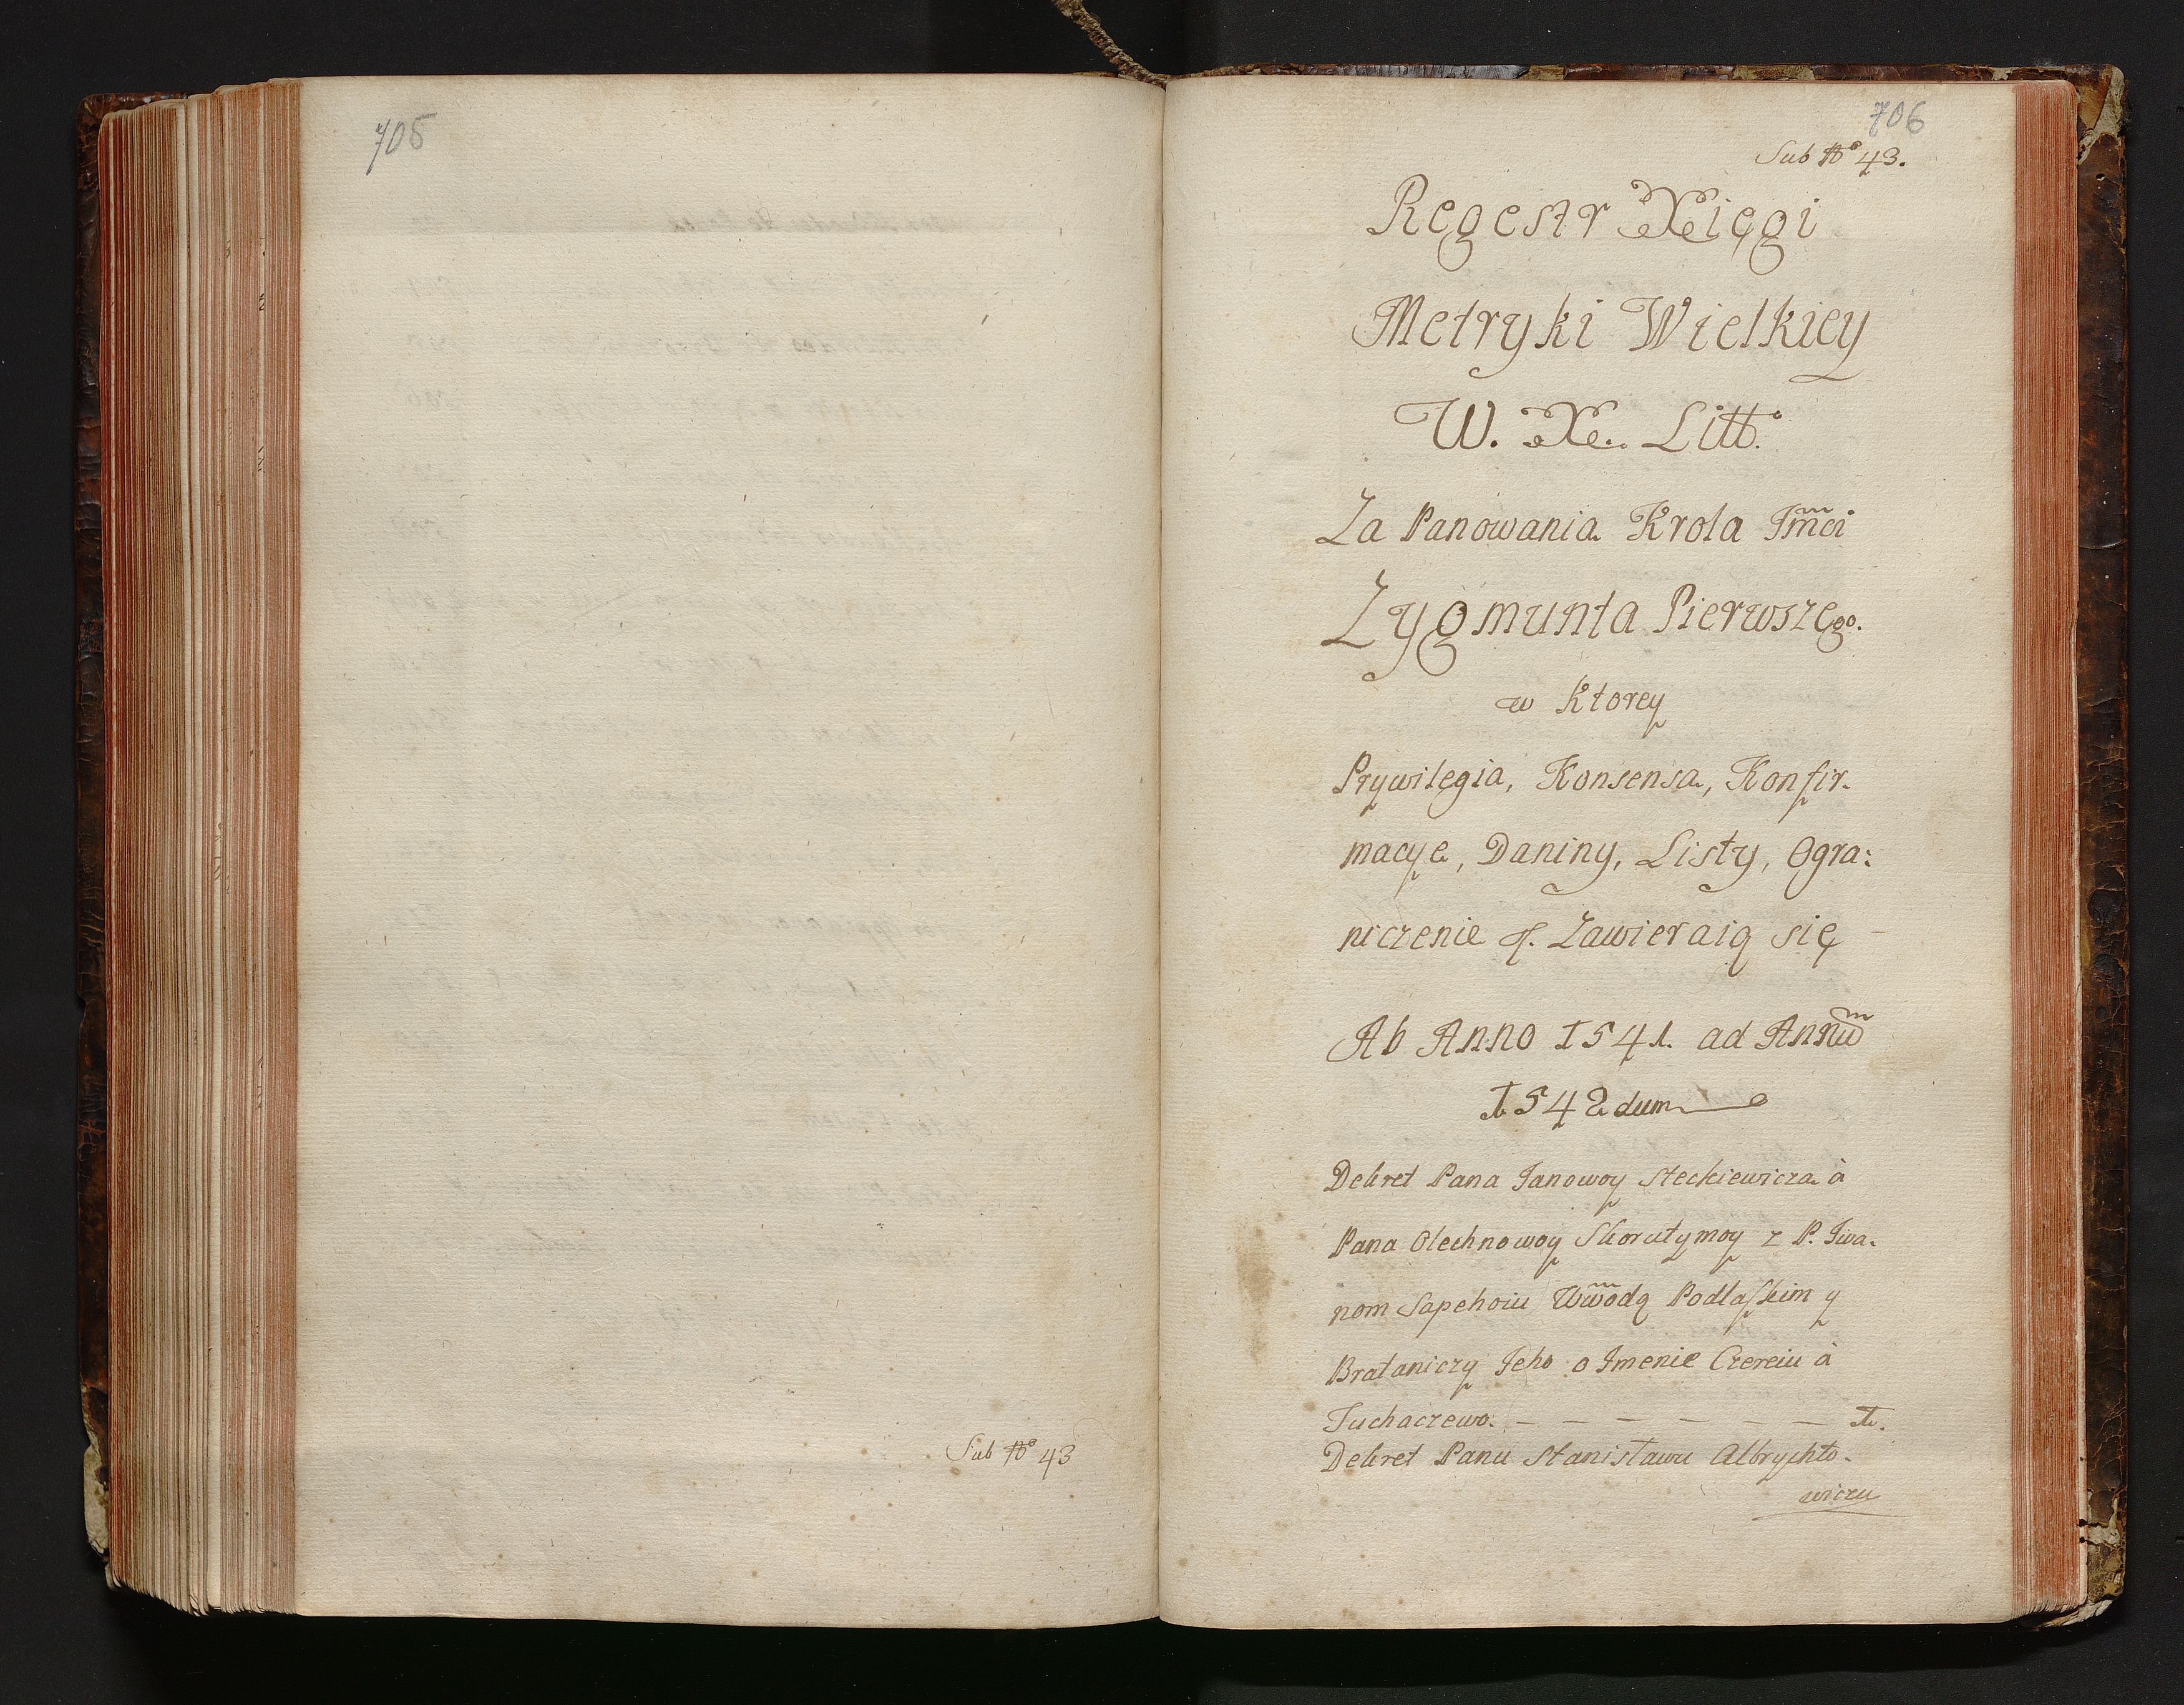 705
Sub No 43
706
Sub No 43.
Regestr Xięgi
Metryki Wielkiey
W. X. Litt.
Za Panowania Krola Jmci
Zygmunta Pierwszego.
w Ktorey
Prywilegia, Konsensa, Konfir-
macye, Daniny, Listy, Ogra:
niczenie &. Zawieraią się
Ab Anno 1541. ad Annum
1542dum
Dekret Pana Janowoy Steckiewicza à
Pana Olechnowoy Skorutymoy z P. Iwa-
nom Sapehoiu Wwodą Podlaskim y
Brataniczy Jeho o Imenie Czereiu à
Tuchaczewo. - - - - - - 1.
Dekret Panu Stanisławu Albrychto-
wiczu